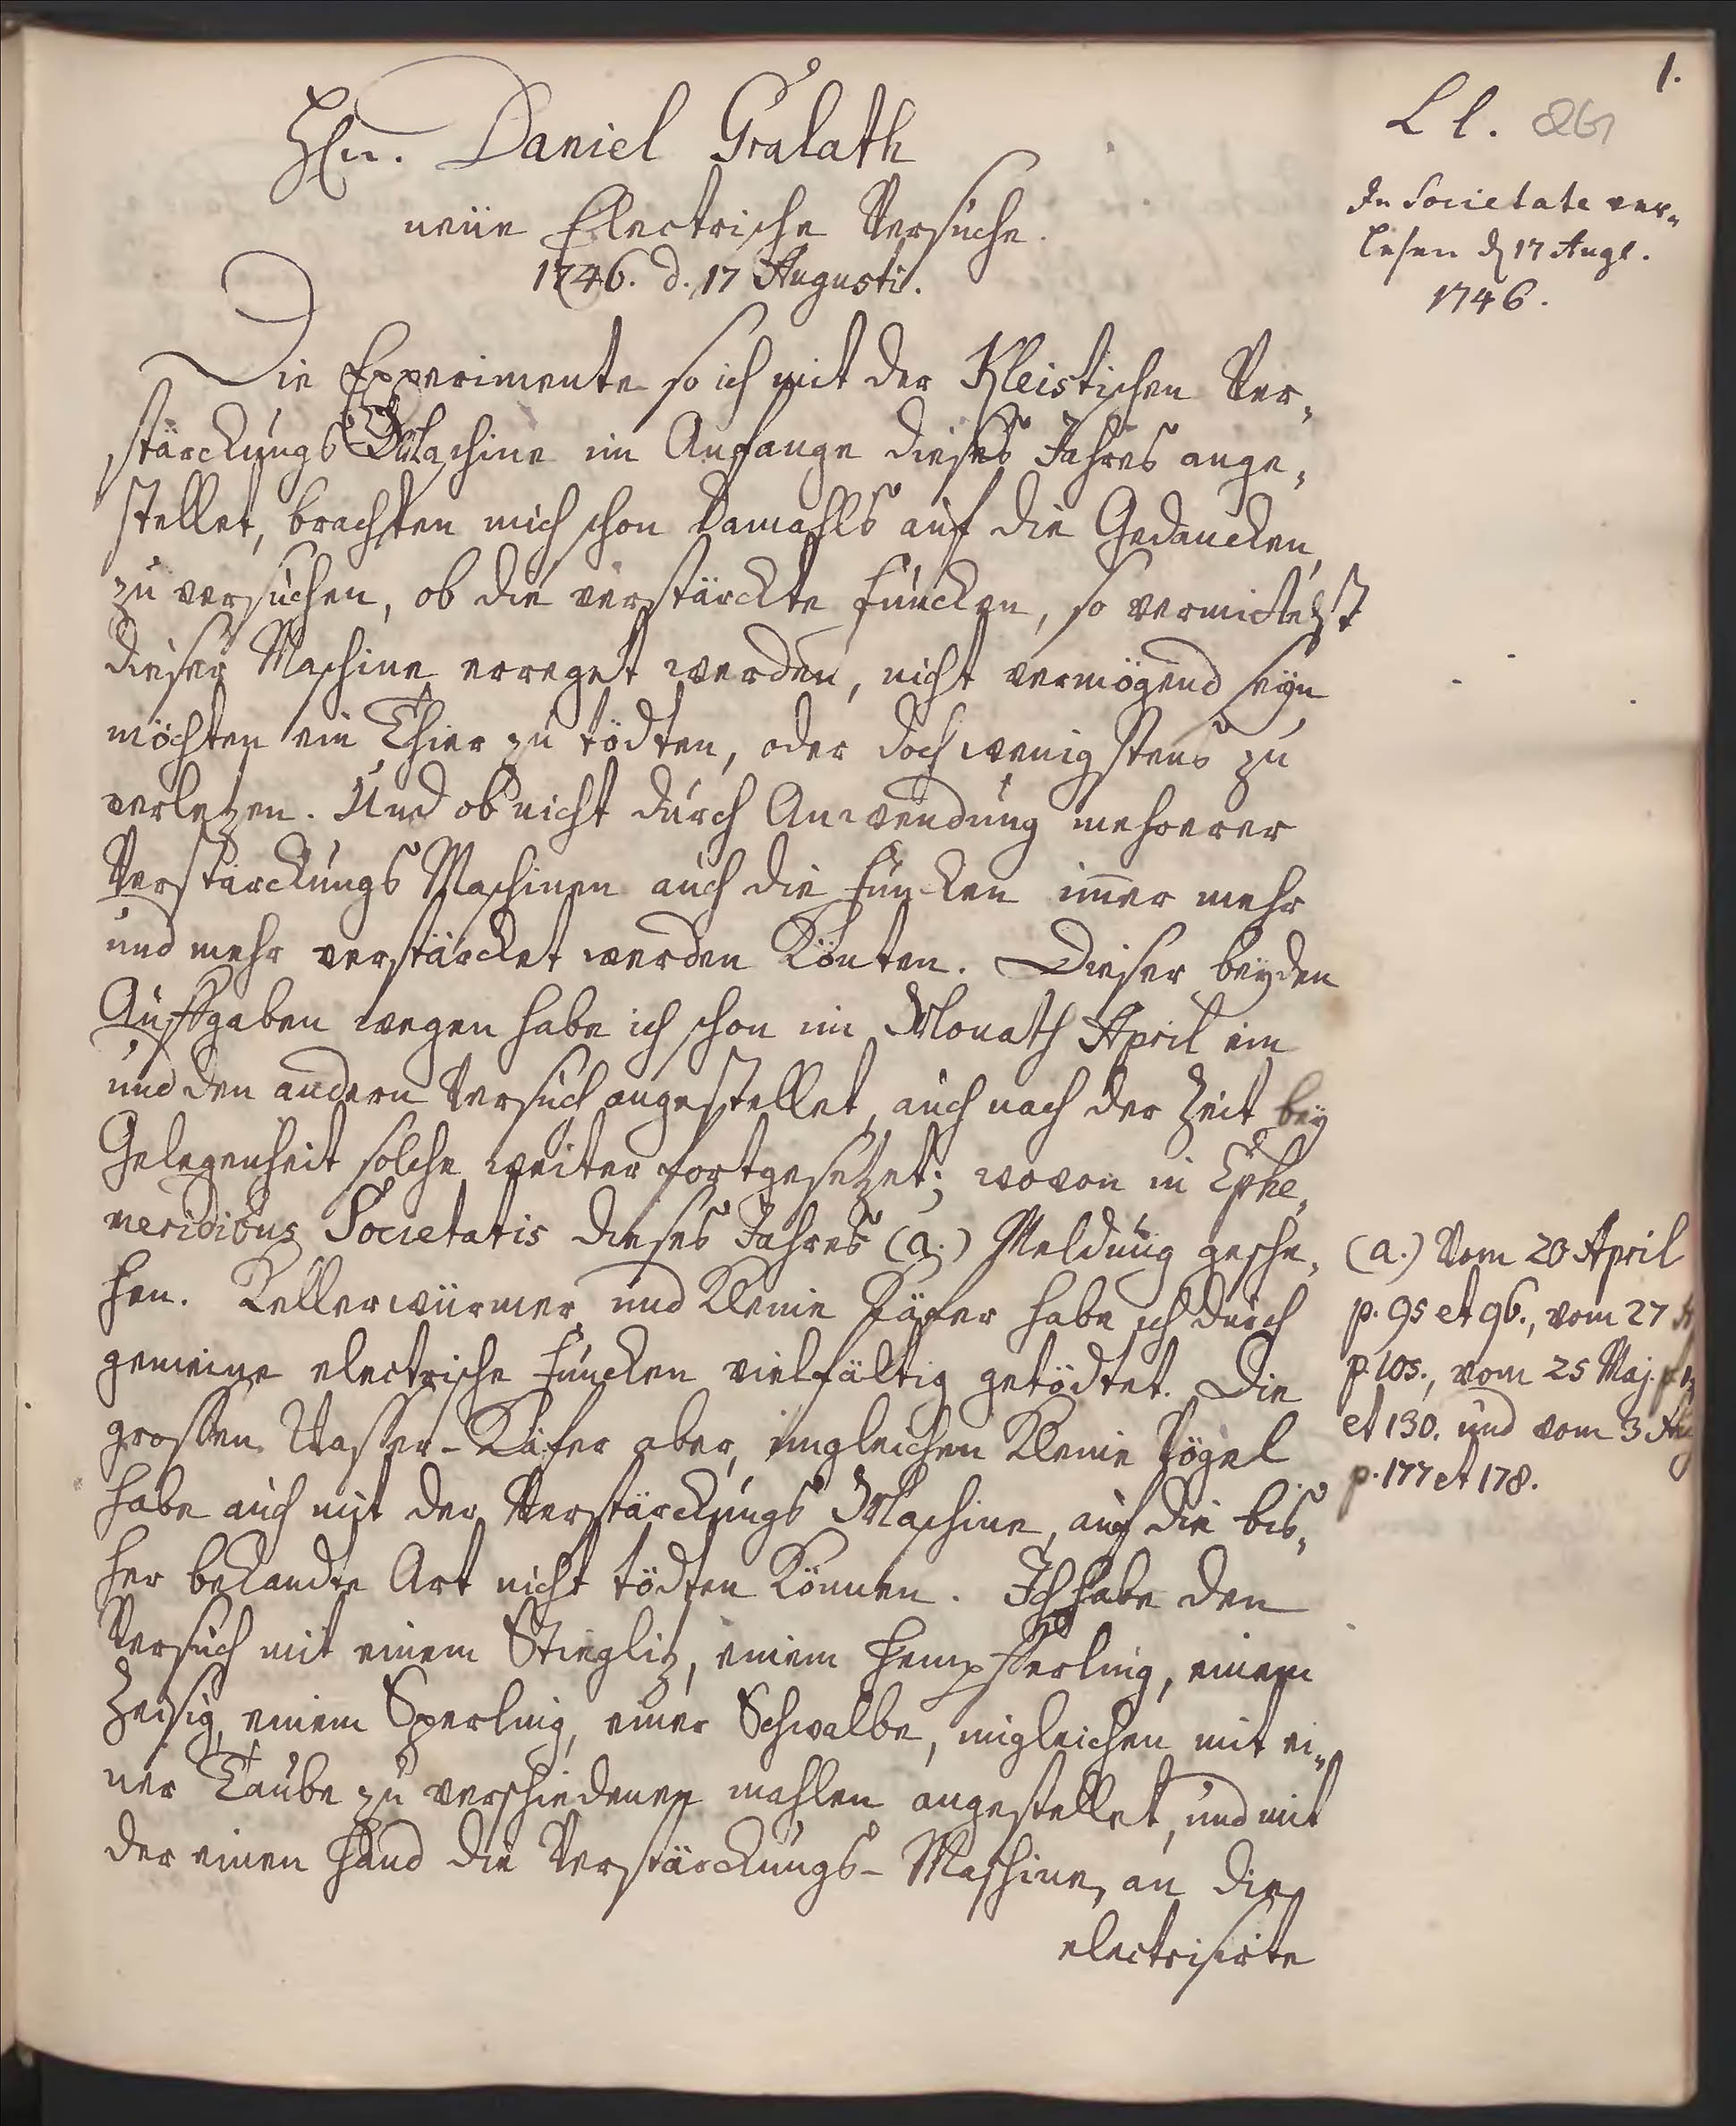 1.
Ll. 261
Hln. Daniel Gralath
neüe Electrische Versuche.
1746. d. 17 Augusti.
In Societate ver-
lesen d 17 Augt.
1746.
Die Experimente so ich mit der Kleistischen Ver-
stärckungs Machine im Anfange dieses Jahres ange-
stellet, brachten mich schon damahls auf die Gedancken,
zu versuchen, ob die verstärckte Funcken, so vermittelst
dieser Maschine erreget werden, nicht vermögend seyn
möchten ein Thier zu tödten, oder doch wenigstens zu
verletzen. Und ob nicht durch Anwendung mehrerer
Verstärckungs Maschinen auch die Funcken im̅er mehr
und mehr verstärcket werden könten. Dieser beyden
Auffgaben wegen habe ich schon im Monath April ein
und den andern Versuch angestellet, auch nach der Zeit bey
Gelegenheit solche weiter fortgesetzet; wovon in Ephe-
meridibus Societatis dieses Jahres (a.) Meldung gesche-
hen. Kellerwürmer und kleine Käfer habe ich durch
gemeine electrische Funcken vielfältig getödtet. Die
grossen Wasser-Käfer aber, imgleichen kleine Vögel
habe auch mit der Verstärckungs Maschine, auf die bis-
her bekandte Art nicht tödten können. Ich habe den
Versuch mit einem Stieglitz, einem Hempfferling, einem
Zeisig, einem Sperling, einer Schwalbe, imgleichen mit ei-
ner Taube zu verschiedenen mahlen angestellet, und mit
der einen Hand die Verstärckungs-Maschine, an die
electrisirte
(a.) Vom 20 April
p. 95 et 96., vom 27
p. 105., vom 25 Maj.
et 130. und vom 3 Aug
p. 177 et 178.